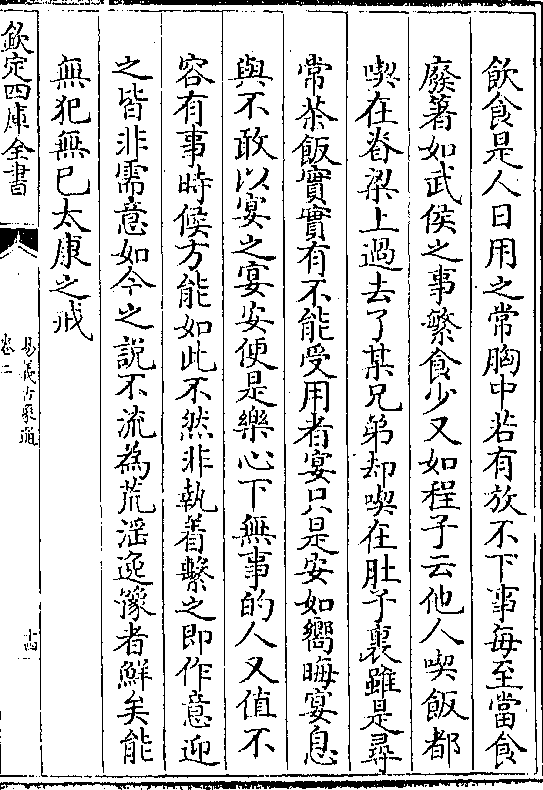 飲食是人日用之常胸中若有放不下事每至當食
廢箸如武侯之事繁食少又如程子云他人喫飯都
喫在脊梁上過去了某兄弟却喫在肚子裏雖是尋
常茶飯實實有不能受用者宴只是安如嚮晦宴息
與不敢以宴之宴安便是樂心下無事的人又值不
容有事時候方能如此不然非執着繫之即作意迎
之皆非需意如今之說不流為荒滛逸豫者鮮矣能
無犯無已太康之戒
欽定四庫全書
易義古象通
卷二
十四